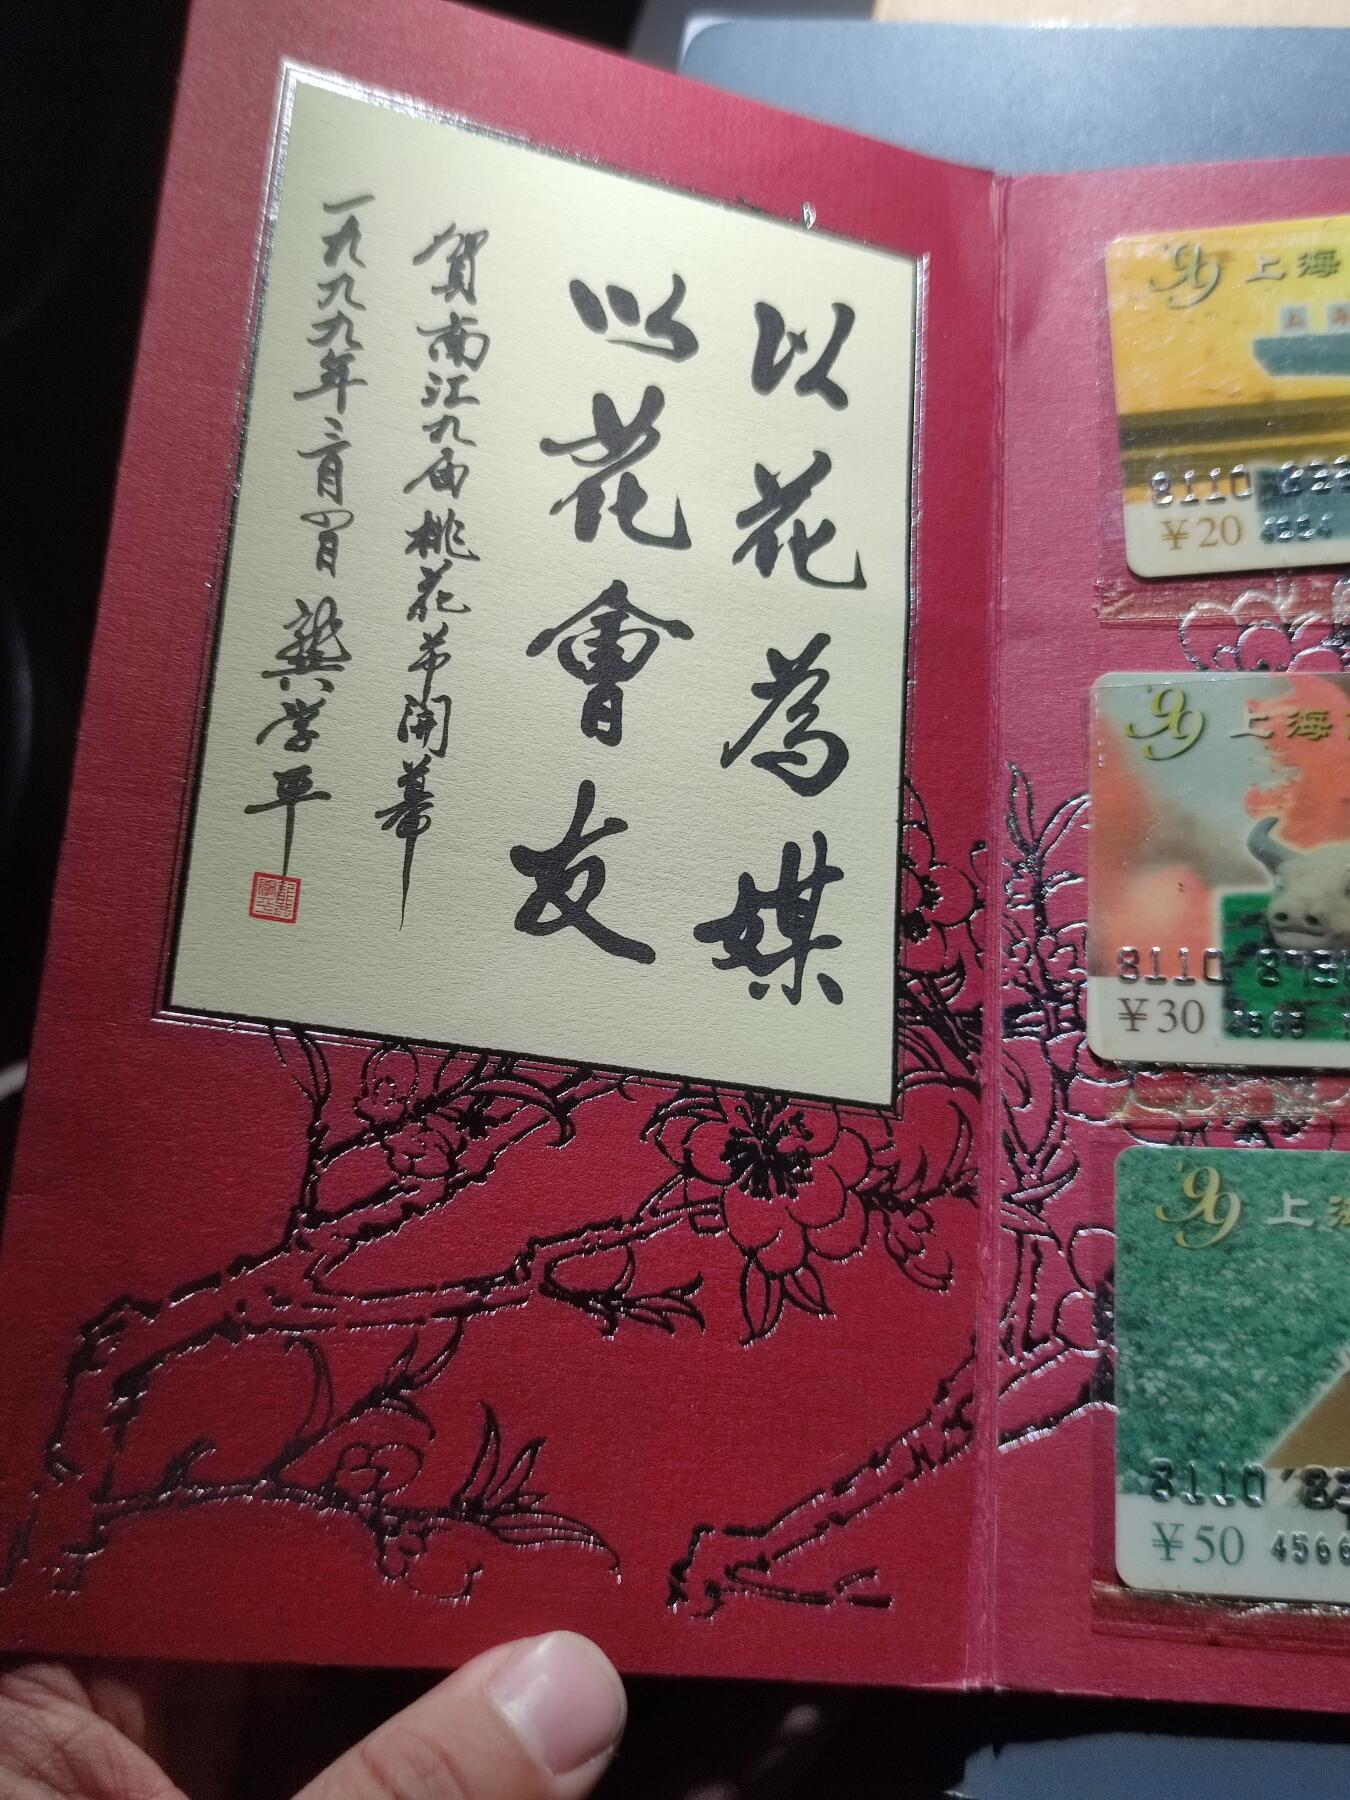 以花為媒
以花會友
賀南汇九届桃花节開幕
一九九九年三月四日
龚学平
99 上海
¥20
8110
4564
99 上海
8110
¥30
4565
99 上海
8110
¥50
4566